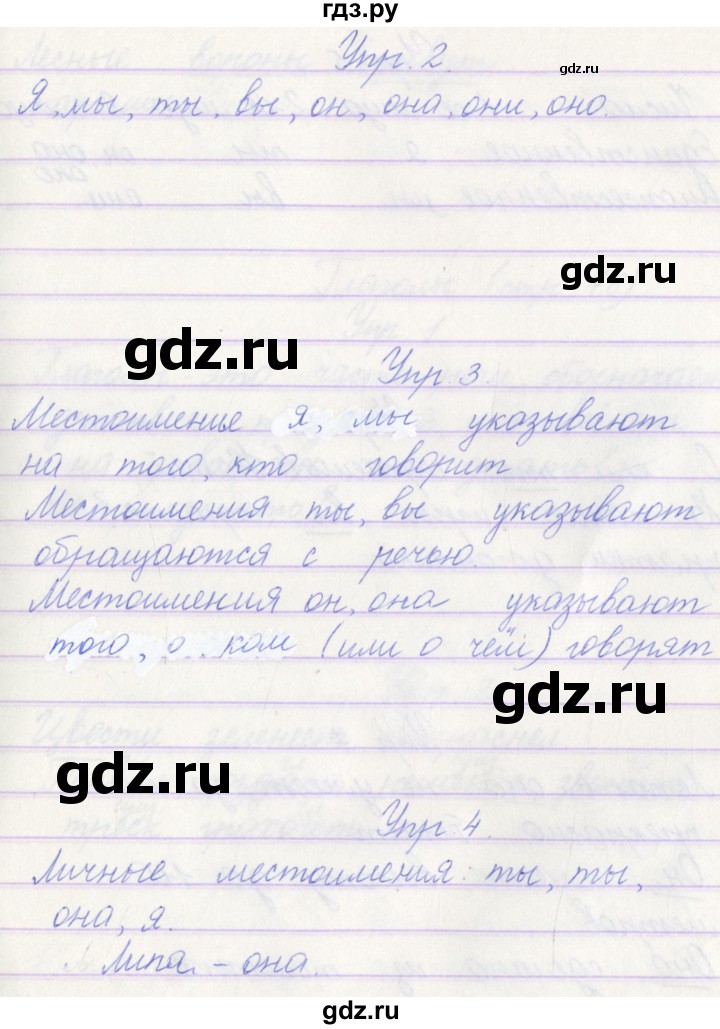 гдз.ру
Упр. 2.
gdz.ru
Я, мы, ты, вы, он, она, они, оно.
gdz.ru
gdz.ru
Упр. 3.
Местоимение я, мы указывают
на того, кто говорит
Местоимения ты, вы указывают
обращаются с речью.
Местоимения он, она указывают
того, о ком (или о чём) говорят
gdz.ru
gdz.ru
Упр 4.
Личные местоимения: ты, ты,
она, я.
Липа – она.
gdz.ru